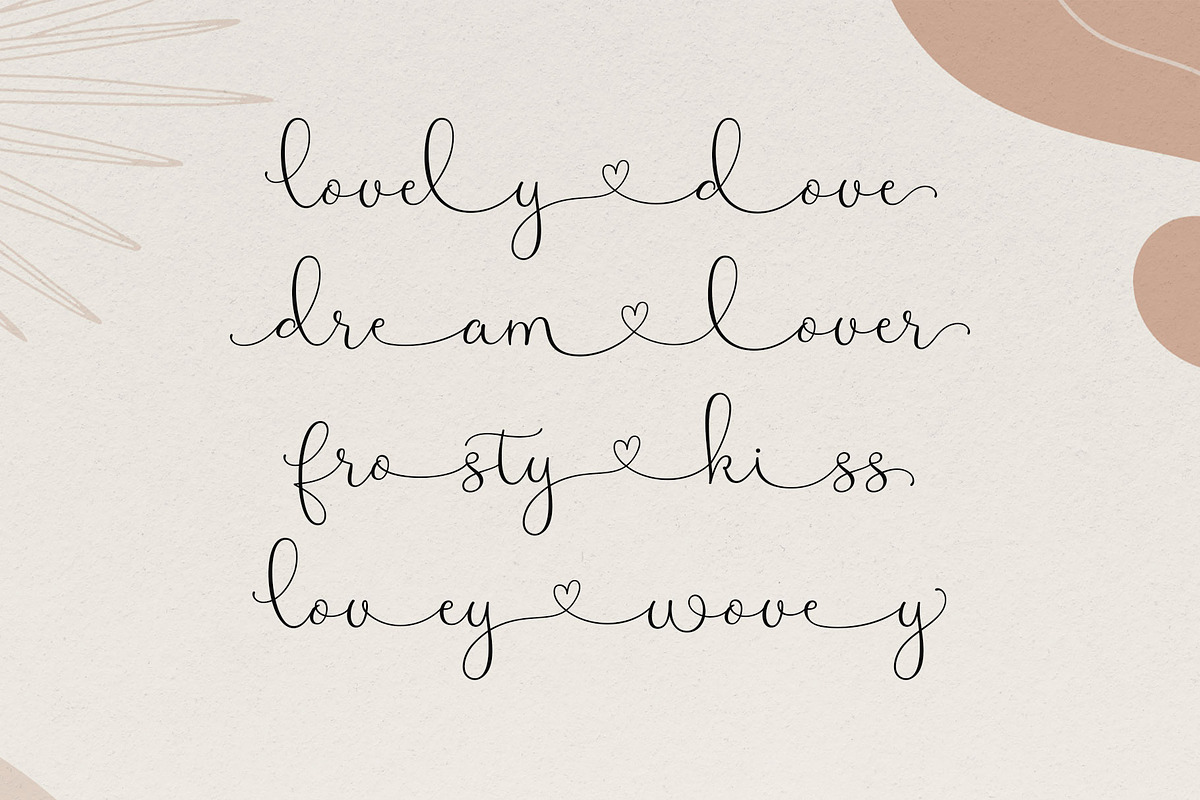 lovely dove
dream lover
frosty kiss
lovey wovey